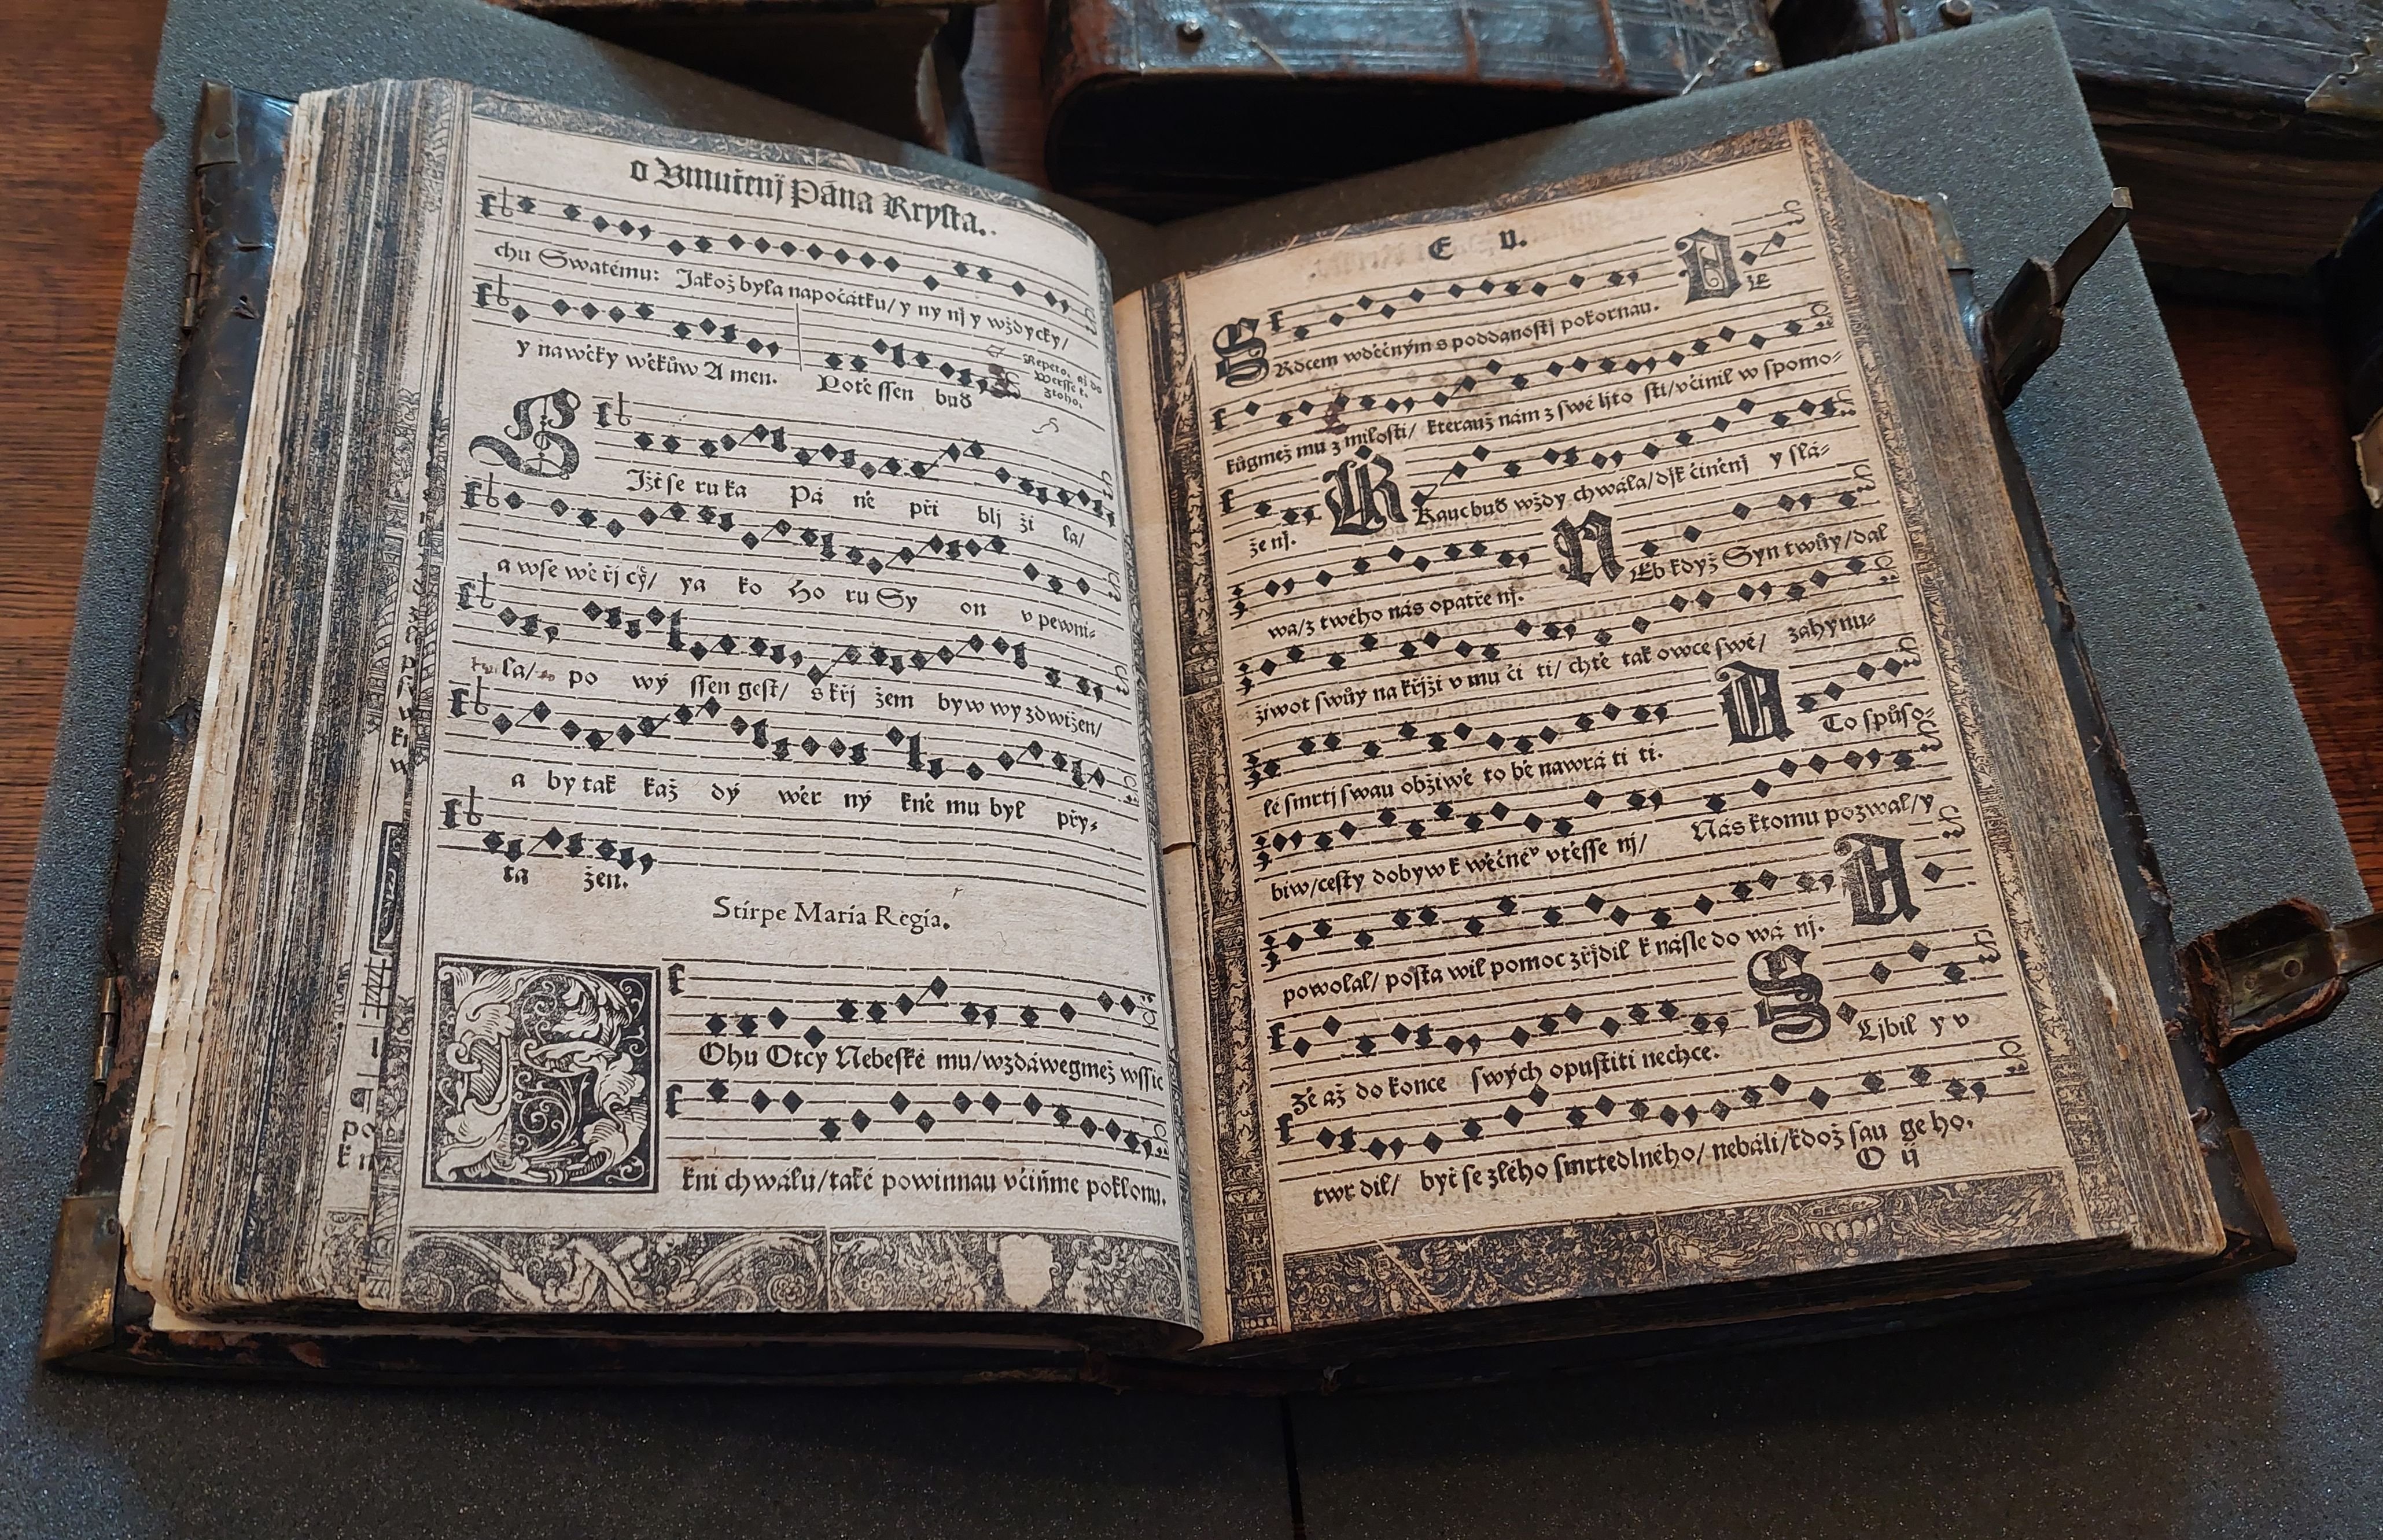 o Vmučenj Pána Krysta.
chu Swatému: Jakož byla napočátku/ y ny nj y wždycky/
y nawěky wěkůw A men. Potě ssen buď
Repeto, až do
Wersse t.
ztoho.
S
Jžť se ru ka Pá ně při blj ži la/
a wse wě řj cý/ ya ko Ho ru Sy on v pewni-
la/ po wý ssen gest/ s křj žem byw wy zdwižen/
a by tak kaž dý wěr ný kně mu byl při-
ta žen.
Stirpe Maria Regia.
B
Ohu Otcy Nebeské mu/wzdáwegmež wssic
kni chwálu/také powinnau včiňme poklonu.
E v.
SRdcem wděčným s poddanostj pokornau. Dě
kůgmež mu z milosti/ kterauž nám z swé ljto sti/včinil w spomo-
že nj. RKaucbuď wždy chwála/djk činěnj y slá-
wa/z twého nás opatře nj. NEb když Syn twůy/dal
žiwot swůy na křjži v mu či ti/ chtě tak owce swé/ zahynu-
lé smrtj swau obžiwě to bě nawrá ti ti. A To spůso-
biw/cesty dobyw k wěčné° vtěsse nj/ Nás ktomu pozwal/y
powolal/ posta wil pomoc zřjdil k násle do wá nj. A
zé až do konce swých opustiti nechce. SLjbil y v
twr dil/ byť se zlého smrtedlného/ nebáli/kdož sau ge ho.
O ij